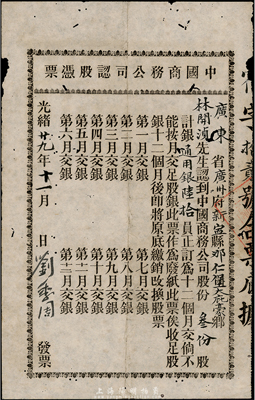 中國商務公司認股憑票
廣東省廣州府新寧縣那仁堡 鄉
林開湞先生認到中國商務公司股份叁份股
計銀通用銀陸拾員正訂為十二個月交倘不
能按月交足股銀此票作為廢紙此票俟收足股
銀十二個月後即將原底繳銷改換股票
第一月交銀 第七月交銀
第二月交銀 第八月交銀
第三月交銀 第九月交銀
第四月交銀 第十月交銀
第五月交銀 第十一月交銀
第六月交銀 第十二月交銀
光緒廿九年十一月 日 劉 周 發票